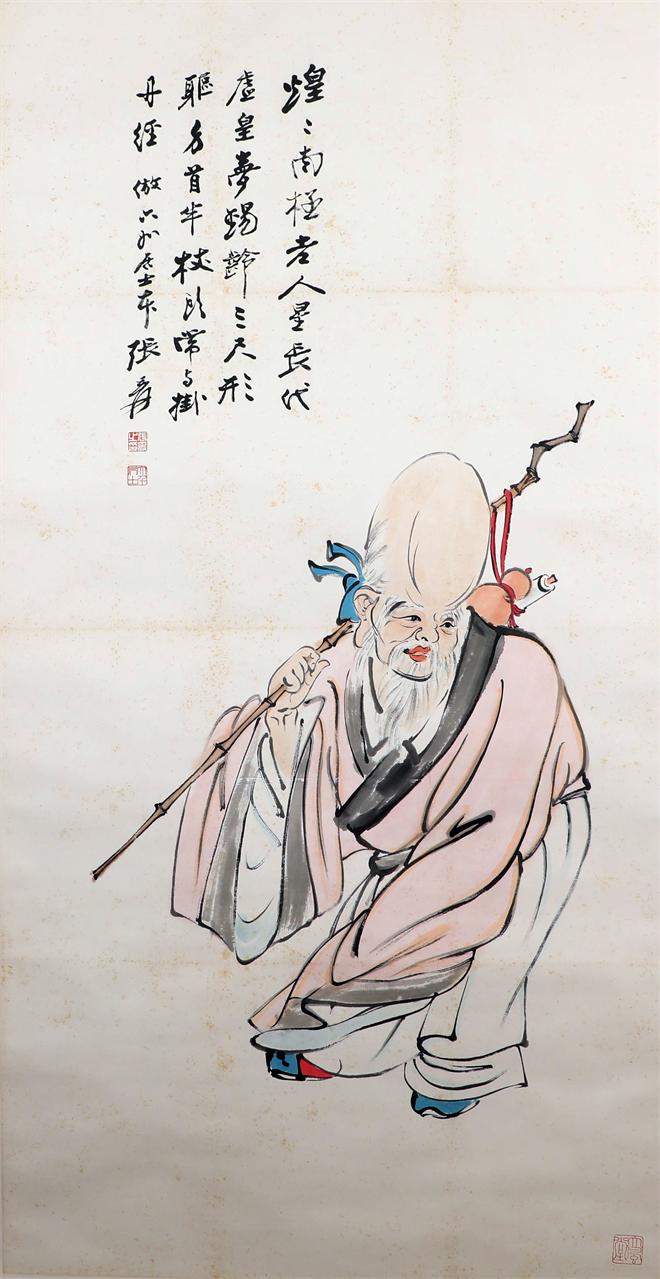 煌〻南極老人星長代
虛皇夢錫齡三尺形
軀方首半杖頭常与掛
丹經 倣六如居士本 張爰